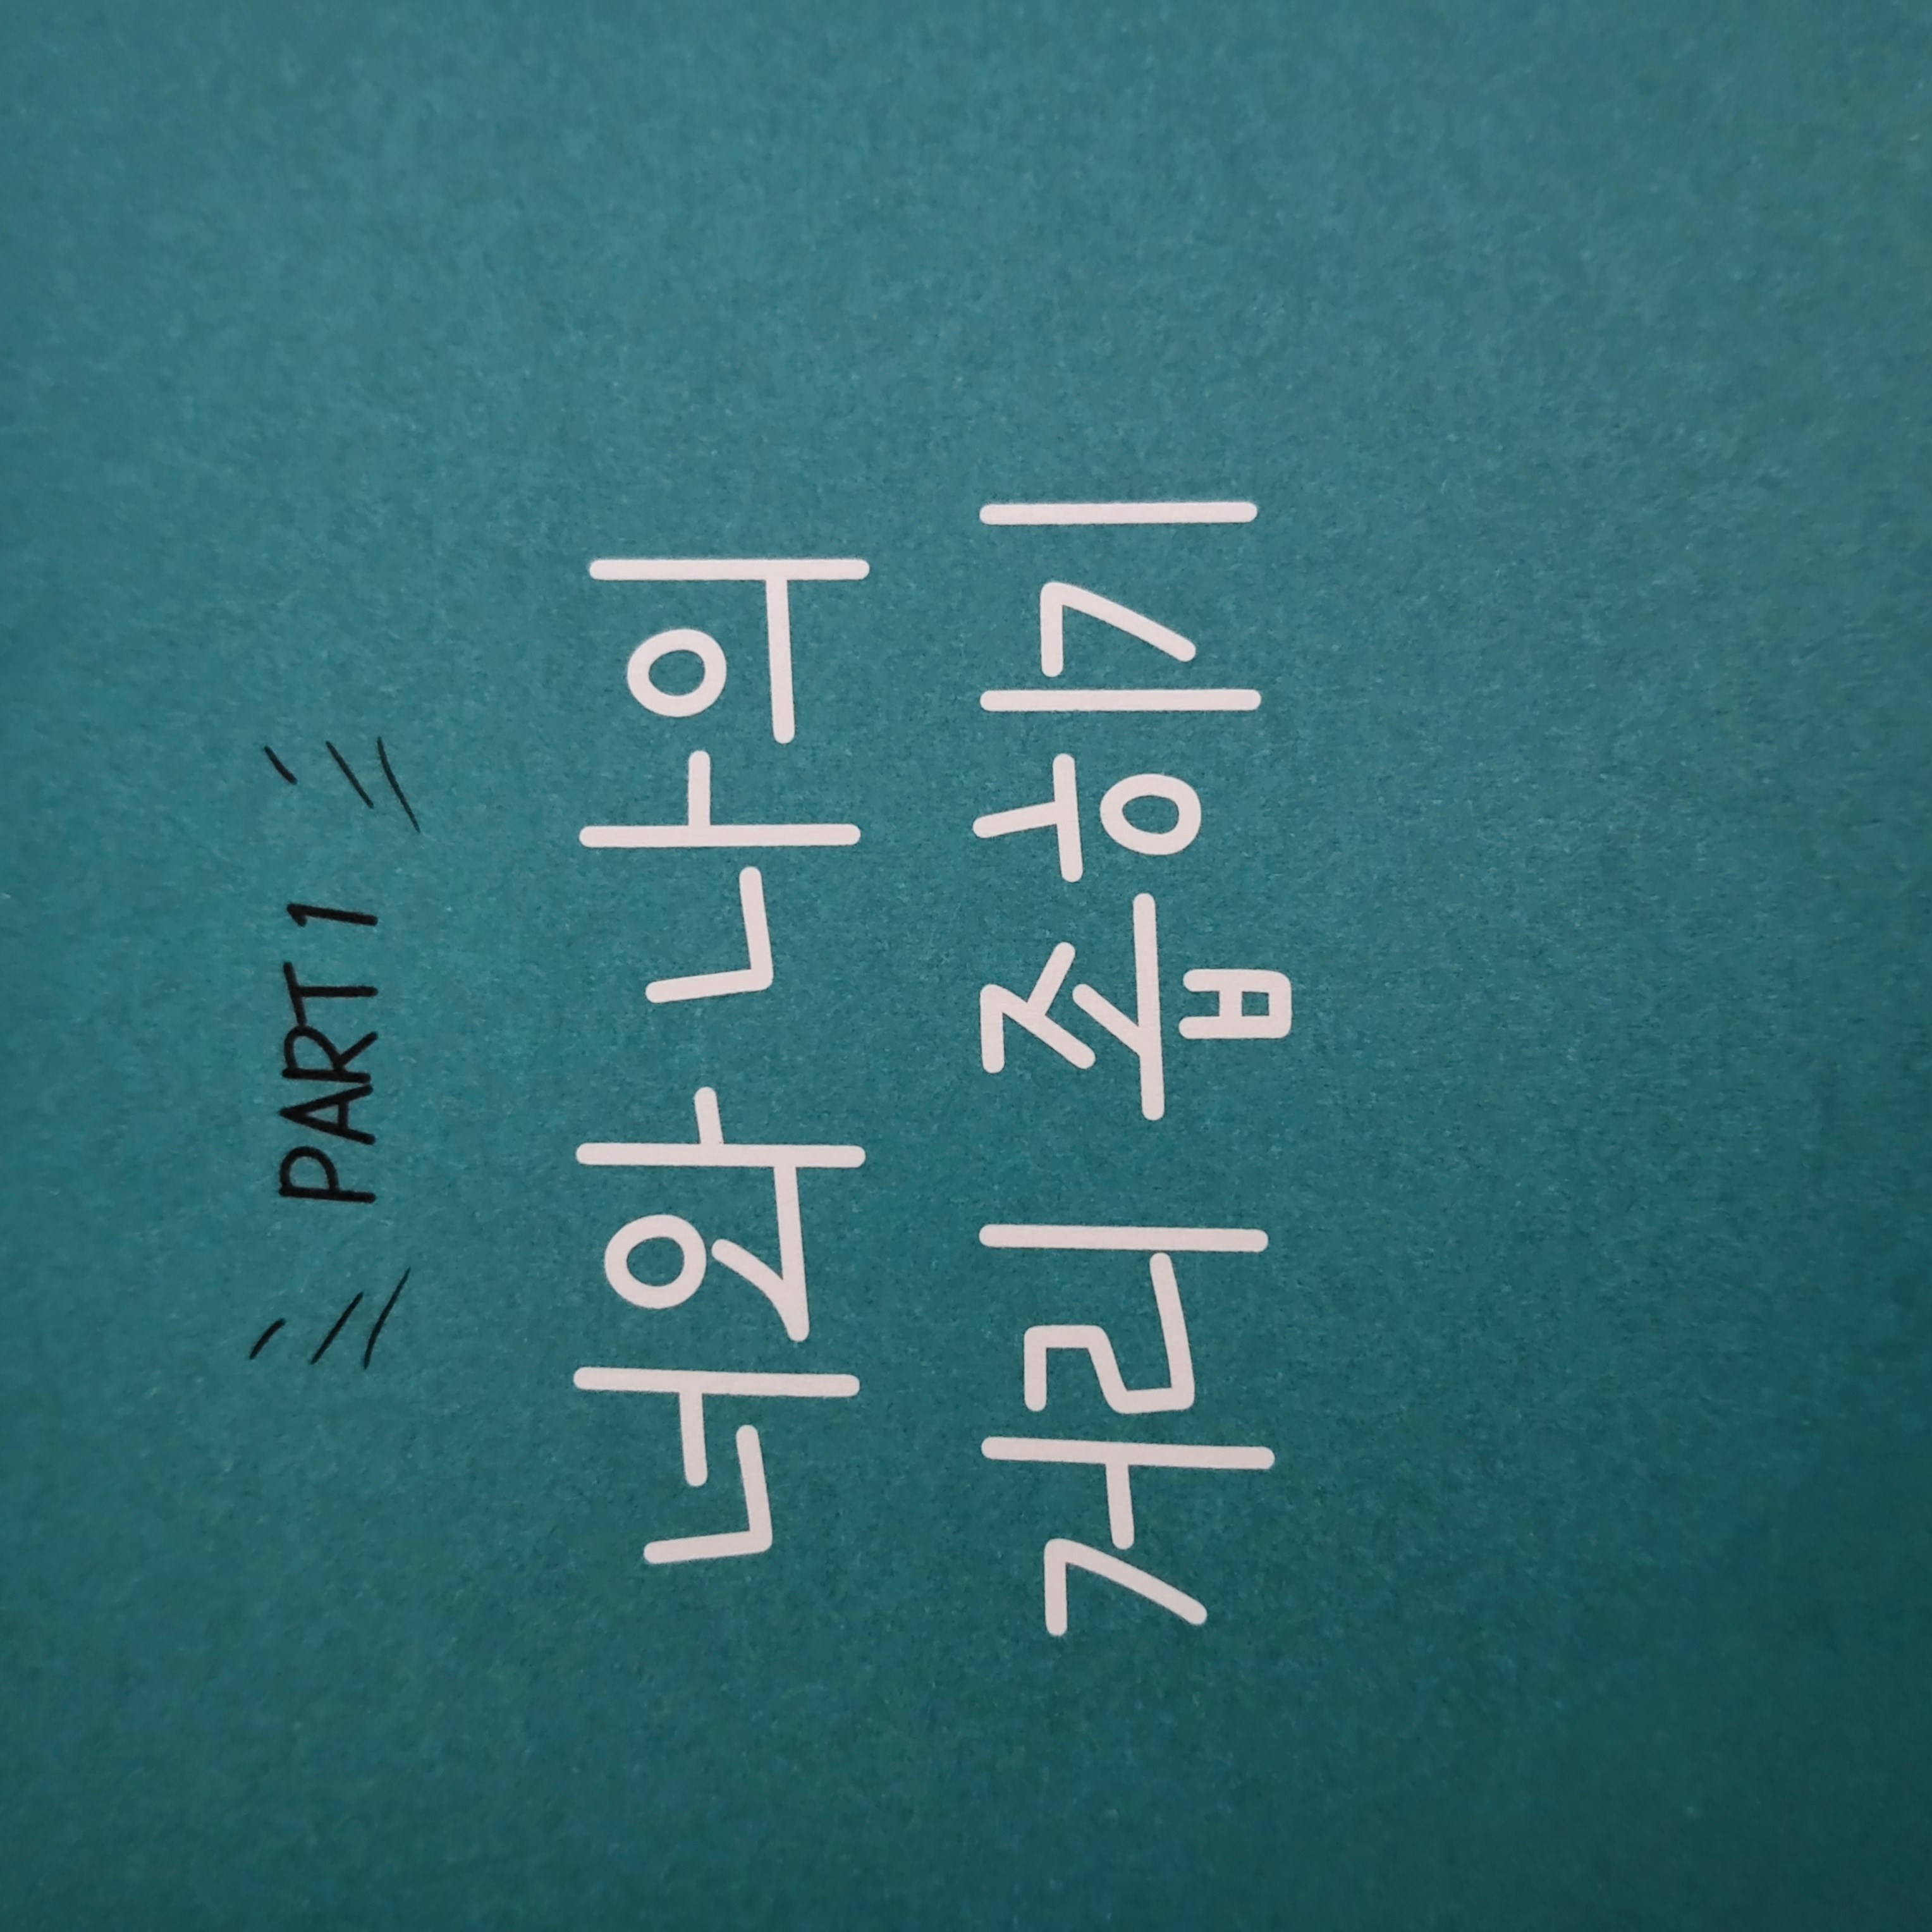 PART 1
너와 나의
거리 좁히기